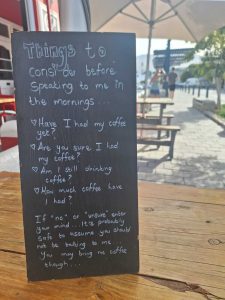 Things to
consider before
speaking to me in
the mornings...
♡ Have I had my coffee
yet?
♡ Are you sure I had
my coffee?
♡ Am I still drinking
coffee?
♡ How much coffee have
I had?
If "no" or "unsure" enter
your mind... It's probably
safe to assume you should
not be talking to me.
You may bring me coffee
though...